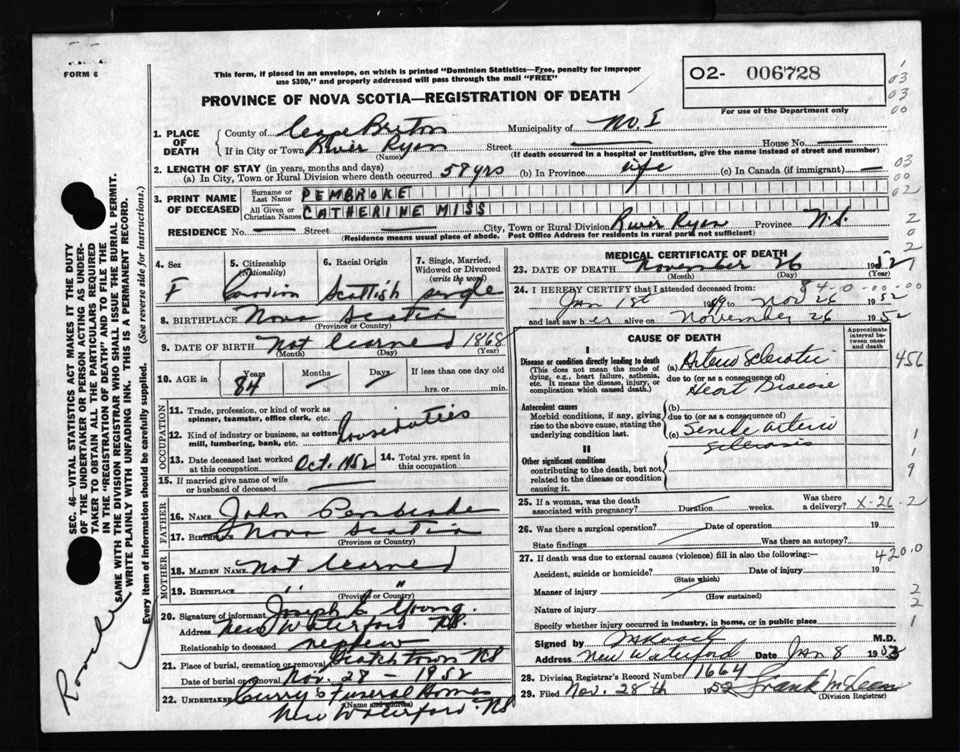 FORM 6
This form, if placed in an envelope, on which is printed "Dominion Statistics—Free, penalty for improper
use $300," and properly addressed will pass through the mail "FREE"
O2- 006728
For use of the Department only
PROVINCE OF NOVA SCOTIA—REGISTRATION OF DEATH
1. PLACE OF DEATH County of Cape Breton Municipality of No. I
If in City or Town River Ryan (Name) Street House No.
(If death occurred in a hospital or institution, give the name instead of street and number)
2. LENGTH OF STAY (in years, months and days)
(a) In City, Town or Rural Division where death occurred 58 yrs (b) In Province life (c) In Canada (if immigrant)
3. PRINT NAME OF DECEASED Surname or Last Name PEMBROKE
All Given or Christian Names CATHERINE MISS
RESIDENCE No. — Street — City, Town or Rural Division River Ryan Province N.S.
(Residence means usual place of abode. Post Office Address for residents in rural parts not sufficient)
4. Sex F
5. Citizenship (Nationality) Canadian
6. Racial Origin Scottish
7. Single, Married, Widowed or Divorced (write the word) single
8. BIRTHPLACE Nova Scotia
(Province or Country)
9. DATE OF BIRTH Not learned 1868
(Month) (Day) (Year)
10. AGE in Years 84 Months Days If less than one day old
hrs. or min.
OCCUPATION
11. Trade, profession, or kind of work as spinner, teamster, office clerk, etc.
12. Kind of industry or business, as cotton mill, lumbering, bank, etc. House duties
13. Date deceased last worked at this occupation Oct. 1952
14. Total yrs. spent in this occupation
15. If married give name of wife or husband of deceased
FATHER
16. NAME John Pembroke
17. BIRTHPLACE Nova Scotia
(Province or Country)
MOTHER
18. MAIDEN NAME Not learned
19. BIRTHPLACE " "
(Province or Country)
20. Signature of informant Joseph C Young.
Address New Waterford NS.
Relationship to deceased nephew
21. Place of burial, cremation or removal Scotchtown NS
Date of burial or removal Nov. 28 - 1952
22. UNDERTAKER Curry's Funeral Home
(Name and address)
New Waterford. NS
MEDICAL CERTIFICATE OF DEATH
23. DATE OF DEATH November 26 1952
(Month) (Day) (Year)
84-0-00-00
24. I HEREBY CERTIFY that I attended deceased from:
Jan 1st 1949 to Nov 26 1952
and last saw her alive on November 26 1952
CAUSE OF DEATH
Approximate interval between onset and death
I
Disease or condition directly leading to death
(This does not mean the mode of dying, e.g., heart failure, asthenia, etc. It means the disease, injury, or complication which caused death.)
(a) Arterio Sclerotic
due to (or as a consequence of)
Heart Disease
456
Antecedent causes
Morbid conditions, if any, giving rise to the above cause, stating the underlying condition last.
(b)
due to (or as a consequence of)
(c) Senile Arterio
Sclerosis
II
Other significant conditions
contributing to the death, but not related to the disease or condition causing it.
25. If a woman, was the death associated with pregnancy? Duration weeks. Was there a delivery? X-26-2
26. Was there a surgical operation? Date of operation 19
State findings Was there an autopsy?
27. If death was due to external causes (violence) fill in also the following:—
4200
Accident, suicide or homicide? Date of injury 19
(State which)
Manner of injury
(How sustained)
Nature of injury
Specify whether injury occurred in industry, in home, or in public place
Signed by M.D.
Address New Waterford Date Jan 8 1953
28. Division Registrar's Record Number 1664
29. Filed Nov. 28th 1952 Frank McLean
(Division Registrar)
SEC. 46—VITAL STATISTICS ACT MAKES IT THE DUTY
OF THE UNDERTAKER OR PERSON ACTING AS UNDER-
TAKER TO OBTAIN ALL THE PARTICULARS REQUIRED
IN THE "REGISTRATION OF DEATH" AND TO FILE THE
SAME WITH THE DIVISION REGISTRAR WHO SHALL ISSUE THE BURIAL PERMIT.
WRITE PLAINLY WITH UNFADING INK. THIS IS A PERMANENT RECORD.
Every item of information should be carefully supplied. (See reverse side for instructions.)